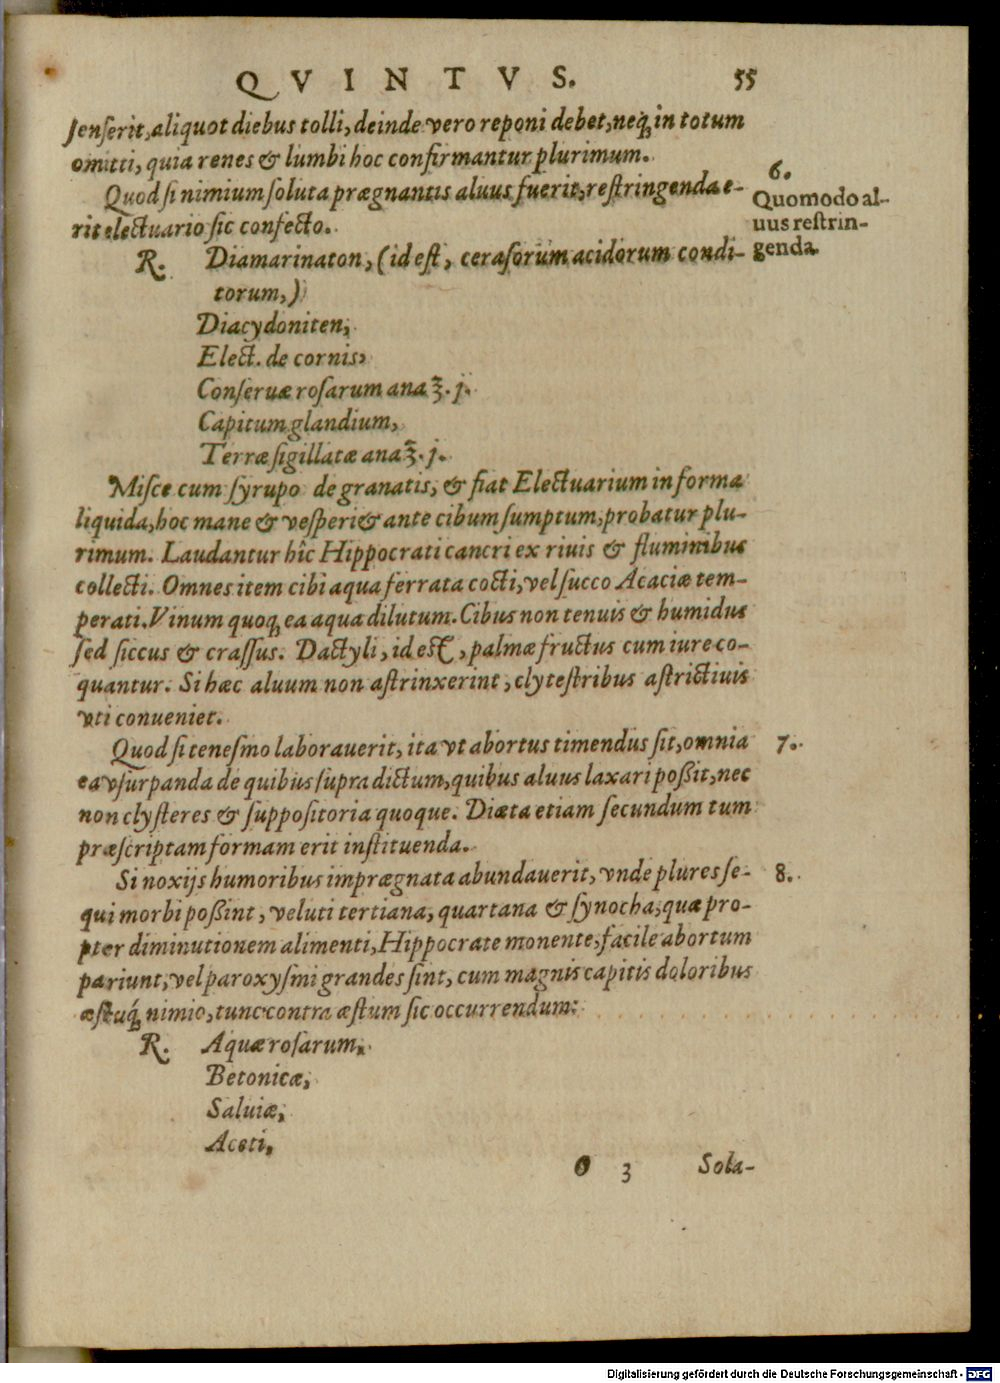 QVINTVS. 55
ſenſerit, aliquot diebus tolli, deinde vero reponi debet, neq; in totum
omitti, quia renes & lumbi hoc confirmantur plurimum.
Quod ſi nimium ſoluta prægnantis aluus fuerit, reſtringenda e-
rit electuario ſic confecto.
6.
Quomodo al-
uus reſtrin-
genda.
R. Diamarinaton, (id eſt, ceraſorum acidorum condi-
torum,)
Diacydoniten,
Elect. de cornis,
Conſeruæ roſarum ana ℥. j.
Capitum glandium,
Terræ ſigillatæ ana ℥. j.
Miſce cum ſyrupo de granatis, & fiat Electuarium in forma
liquida, hoc mane & veſperi & ante cibum ſumptum, probatur plu-
rimum. Laudantur hîc Hippocrati cancri ex riuis & fluminibus
collecti. Omnes item cibi aqua ferrata cocti, vel ſucco Acaciæ tem-
perati. Vinum quoq; ea aqua dilutum. Cibus non tenuis & humidus
ſed ſiccus & craſſus. Dactyli, id eſt, palmæ fructus cum iure co-
quantur. Si hæc aluum non aſtrinxerint, clyteſtribus aſtrictiuis
vti conueniet.
Quod ſi teneſmo laborauerit, ita vt abortus timendus ſit, omnia
7.
ea vſurpanda de quibus ſupra dictum, quibus aluus laxari poßit, nec
non clyſteres & ſuppoſitoria quoque. Diæta etiam ſecundum tum
præſcriptam formam erit inſtituenda.
Si noxijs humoribus imprægnata abundauerit, vnde plures ſe-
8.
qui morbi poßint, veluti tertiana, quartana & ſynocha, quæ pro-
pter diminutionem alimenti, Hippocrate monente, facile abortum
pariunt, vel paroxyſmi grandes ſint, cum magnis capitis doloribus
æſtuq́; nimio, tunc contra æſtum ſic occurrendum:
R. Aquæ roſarum,
Betonicæ,
Saluiæ,
Aceti,
O 3 Sola-
Digitalisierung gefördert durch die Deutsche Forschungsgemeinschaft - DFG